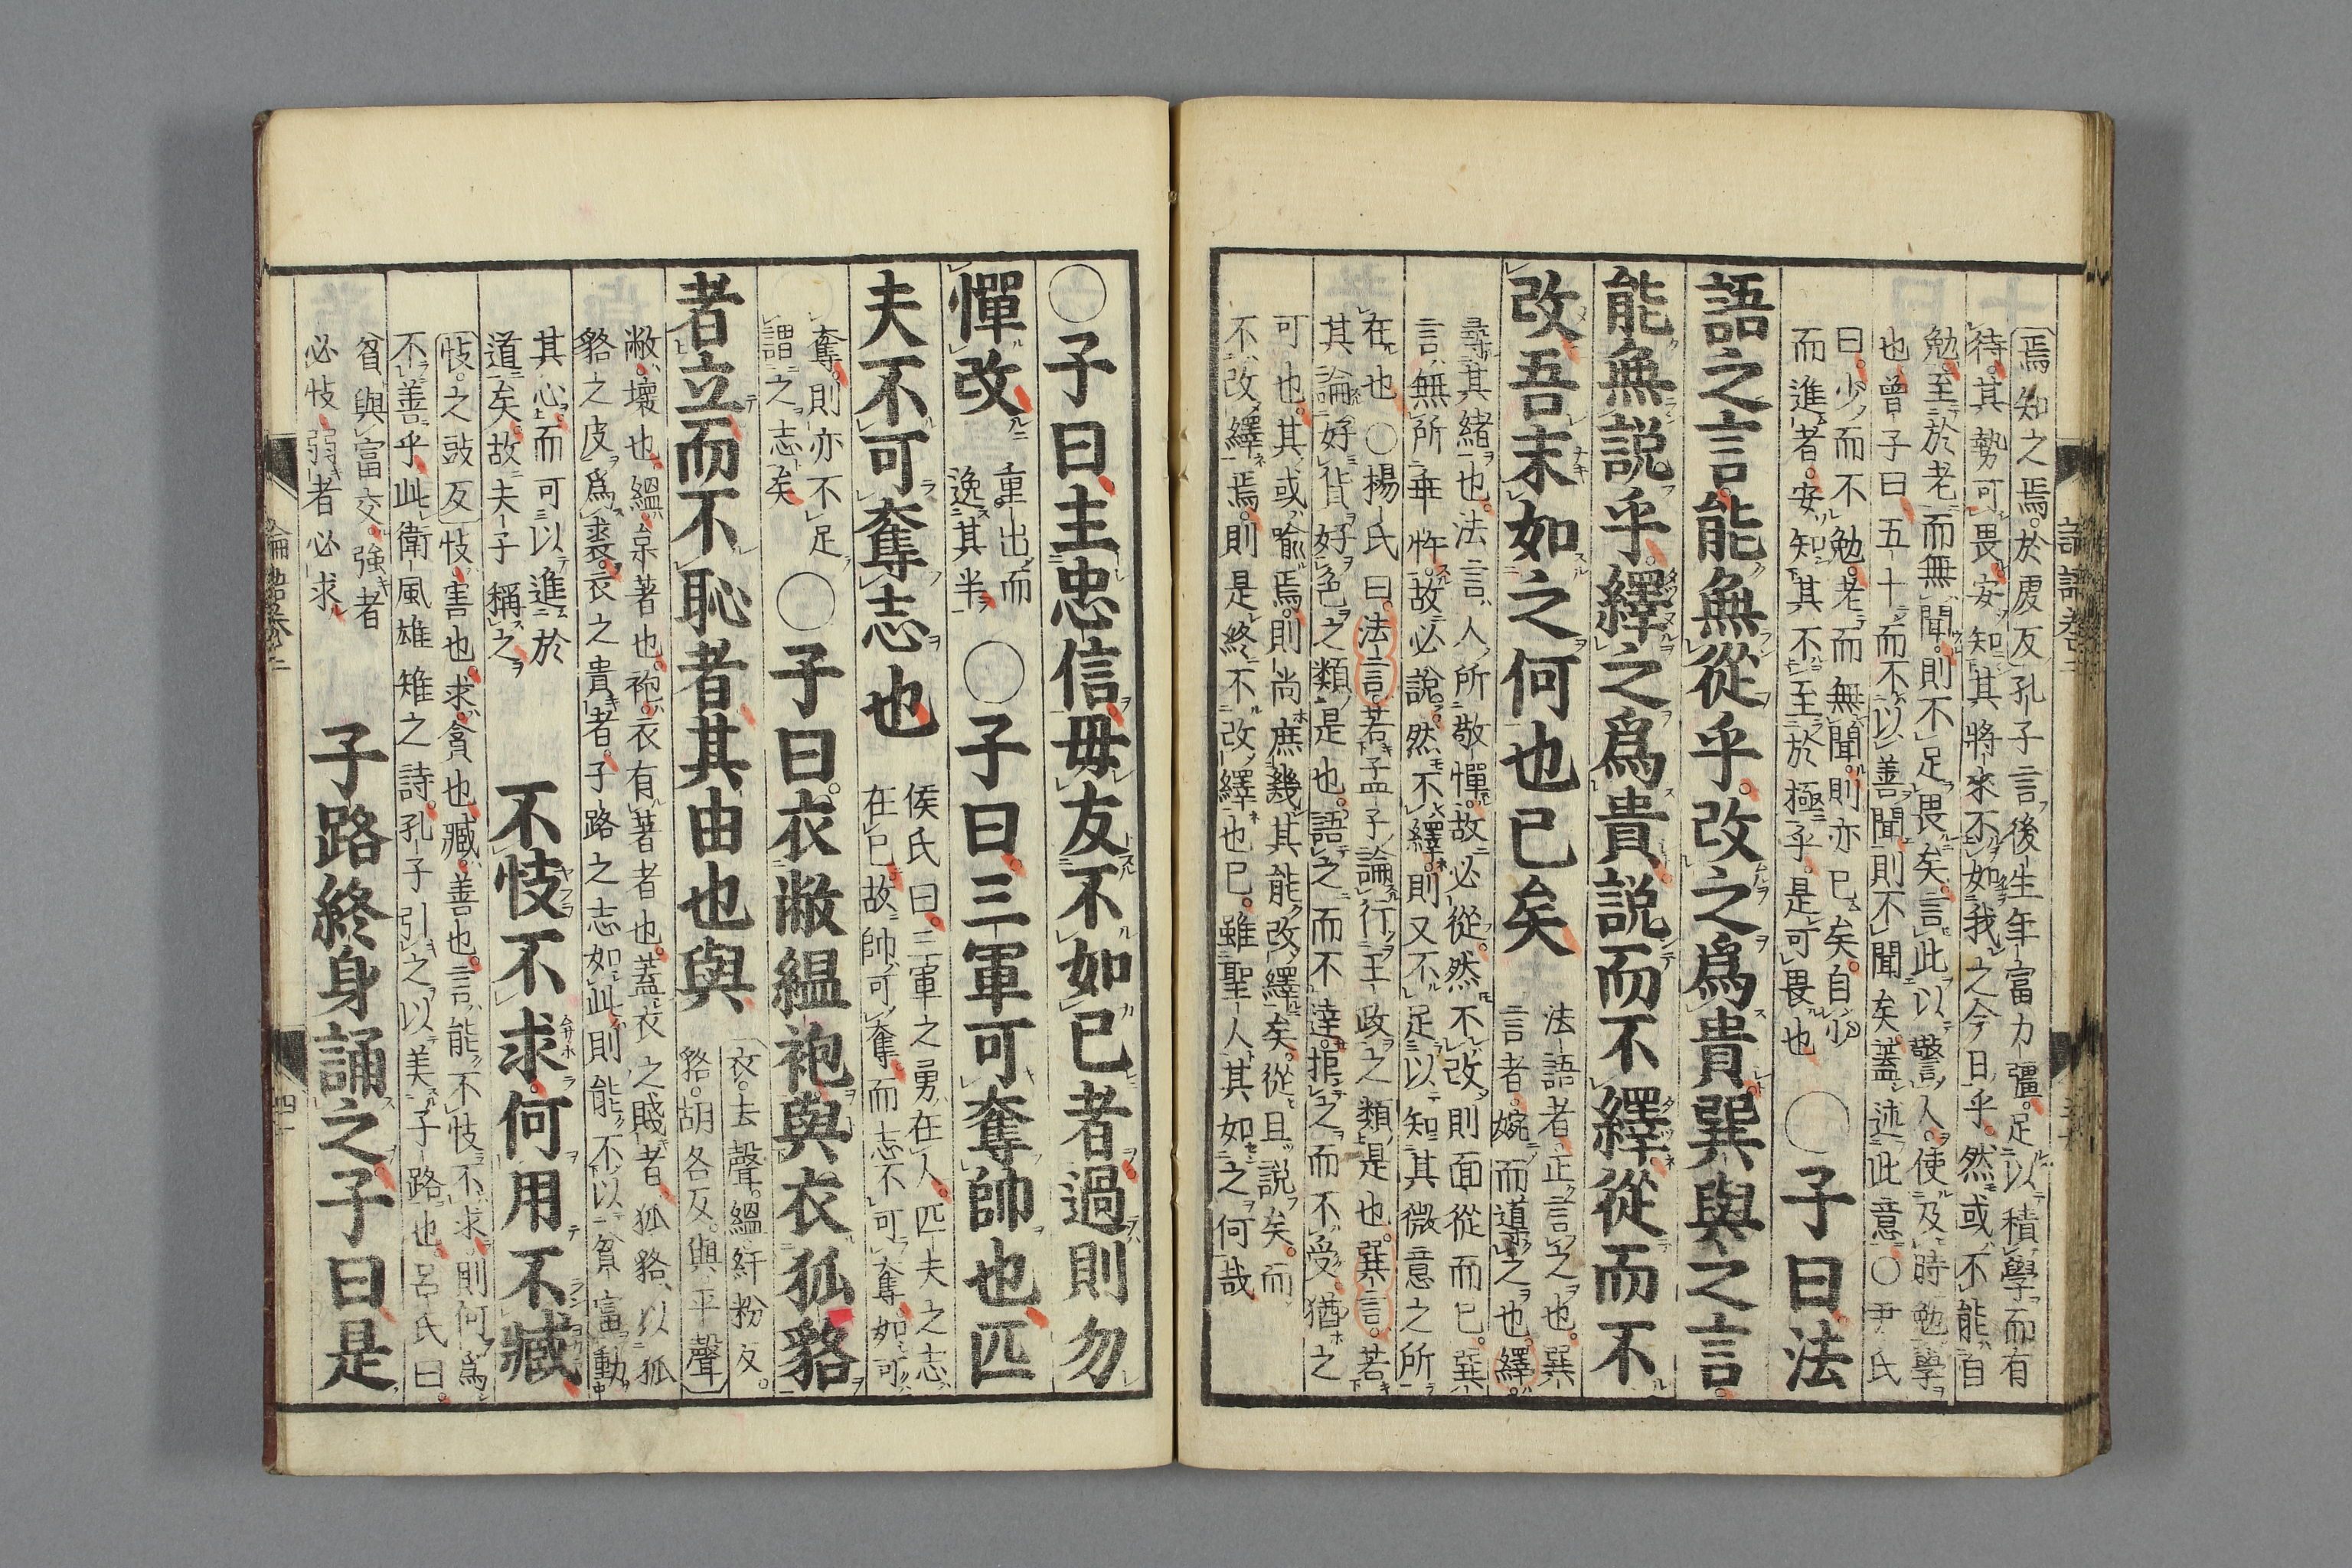 論語卷二
〔焉知之焉於虔反〕孔子言後生年富力彊足以積學而有
待其勢可畏安知其將來不如我之今日乎然或不能自
勉至於老而無聞則不足畏矣言此以警人使及時勉學
也曾子曰五十而不以善聞則不聞矣蓋述此意○尹氏
曰少而不勉老而無聞則亦已矣自少
而進者安知其不至於極乎是可畏也
○子曰法
語之言能無從乎改之爲貴巽與之言
能無説乎繹之爲貴説而不繹從而不
改吾末如之何也已矣
法語者正言之也巽
言者婉而導之也繹
尋其緒也法言人所敬憚故必從然不改則面從而已巽
言無所乖忤故必說然不繹則又不足以知其微意之所
在也○楊氏曰法言若孟子論行王政之類是也巽言若
其論好貨好色之類是也語之而不達拒之而不受猶之
可也其或喻焉則尚庶幾其能改繹矣從且説矣而
不改繹焉則是終不改繹也已雖聖人其如之何哉
○子曰主忠信毋友不如已者過則勿
憚改
重出而
逸其半
○子曰三軍可奪帥也匹
夫不可奪志也
侯氏曰三軍之勇在人匹夫之志
在已故帥可奪而志不可奪如可
奪則亦不足
謂之志矣
○子曰衣敝縕袍與衣狐貉
者立而不恥者其由也與
〔衣去聲縕紆粉反
貉胡各反與平聲〕
敝壞也縕枲著也袍衣有著者也蓋衣之賤者狐貉以狐
貉之皮爲裘衣之貴者子路之志如此則能不以貧富動
其心而可以進於
道矣故夫子稱之
不忮不求何用不臧
〔忮之豉反〕忮害也求貪也臧善也言能不忮不求則何爲
不善乎此衛風雄雉之詩孔子引之以美子路也呂氏曰
貧與富交強者
必忮弱者必求
子路終身誦之子曰是
論語卷二